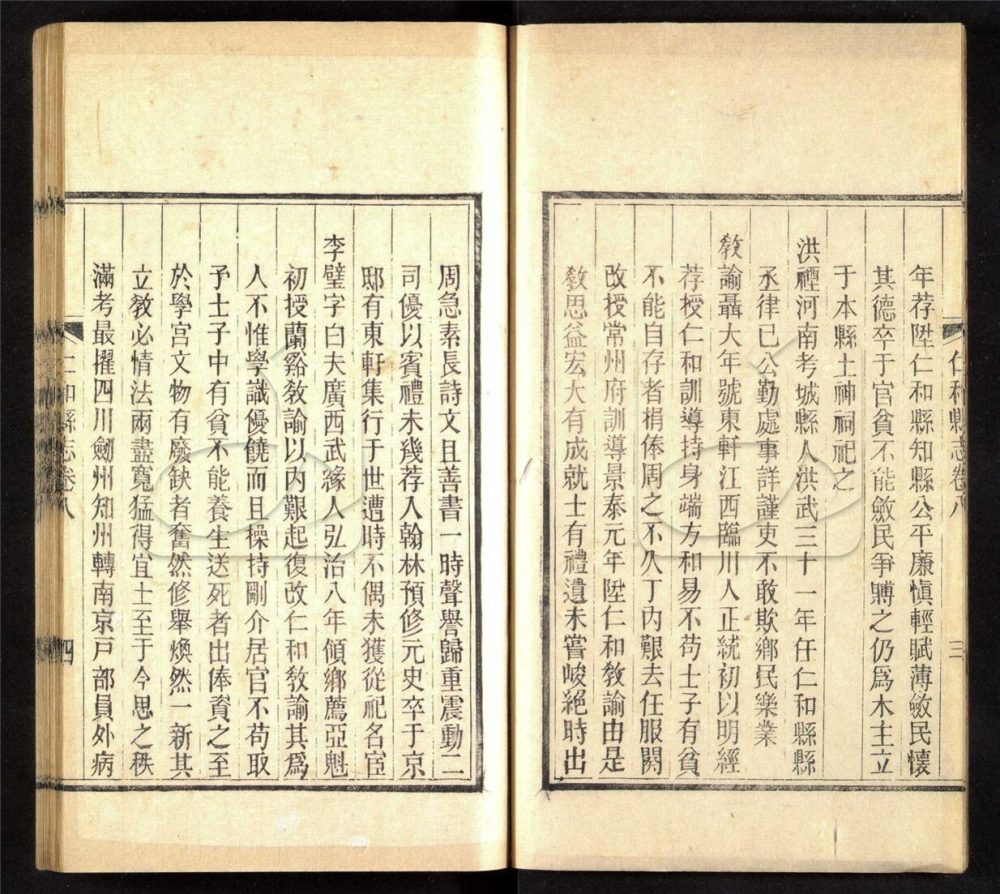 年荐陞仁和縣知縣公平廉愼輕賦薄斂民懷
其德卒于官貧不能斂民爭賻之仍爲木主立
于本縣土神祠祀之
洪禋河南考城縣人洪武三十一年任仁和縣縣
丞律已公勤處事詳謹吏不敢欺鄉民樂業
敎諭聶大年號東軒江西臨川人正統初以明經
荐授仁和訓導持身端方和易不苟士子有貧
不能自存者捐俸周之不久丁內艱去任服闋
改授常州府訓導景泰元年陞仁和敎諭由是
敎思益宏大有成就士有禮遺未嘗峻絕時出
仁和縣志卷八
三
周急素長詩文且善書一時聲譽歸重震動二
司優以賓禮未幾荐入翰林預修元史卒于京
邸有東軒集行于世遭時不偶未獲從祀名宦
李璧字白夫廣西武緣人弘治八年領鄉薦亞魁
初授蘭谿敎諭以內艱起復改仁和敎諭其爲
人不惟學識優饒而且操持剛介居官不苟取
予士子中有貧不能養生送死者出俸賚之至
於學宮文物有廢缺者奮然修舉煥然一新其
立敎必情法兩盡寬猛得宜士至于今思之秩
滿考最擢四川劒州知州轉南京戸部員外病
仁和縣志卷八
四